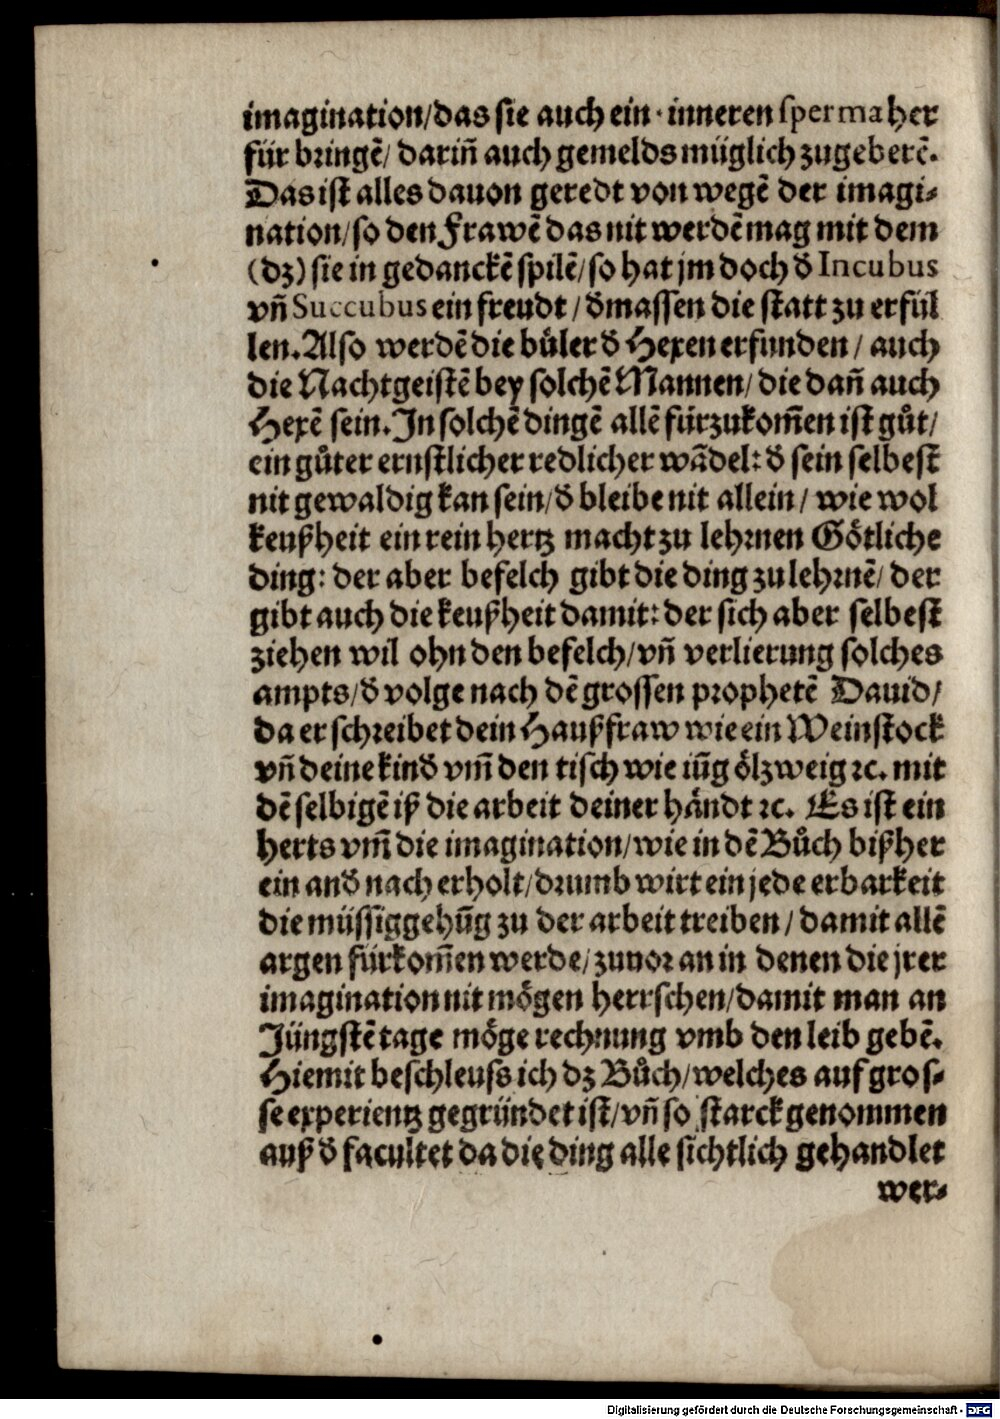 imagination/das sie auch ein inneren sperma her
für bringē/ dariñ auch gemelds müglich zugeberē.
Das ist alles dauon geredt von wegē der imagi⸗
nation/so den Frawē das nit werdē mag mit dem
(dz) sie in gedanckē spilē/so hat jm doch đ Incubus
vñ Succubus ein freudt / đmassen die statt zu erfül
len. Also werdē die bůler đ Hexen erfunden / auch
die Nachtgeistē bey solchē Mannen/ die dañ auch
Hexē sein. In solchē dingē allē fürzukom̄en ist gůt/
ein gůter ernstlicher redlicher wādel: đ sein selbest
nit gewaldig kan sein/đ bleibe nit allein / wie wol
keuſzheit ein rein hertz macht zu lehrnen Götliche
ding: der aber befelch gibt die ding zu lehrnē/ der
gibt auch die keußheit damit: der sich aber selbest
ziehen wil ohn den befelch/vñ verlierung solches
ampts/đ volge nach dē grossen prophetē Dauid/
da er schreibet dein Haußfraw wie ein Weinstock
vñ deine kinđ vm̄ den tisch wie iūg ölzweig ꝛc. mit
dē selbigē iß die arbeit deiner händt ꝛc. Es ist ein
herts vm̄ die imagination/wie in dē Bůch bißher
ein anđ nach erholt/drumb wirt ein jede erbarkeit
die müssiggehūg zu der arbeit treiben / damit allē
argen fürkom̄en werde/ zuuor an in denen die jrer
imagination nit mögen herrschen/damit man an
Jüngstē tage möge rechnung vmb den leib gebē.
Hiemit beschleuss ich dz Bůch/welches auf gros⸗
se experientz gegründet ist/vñ so starck genommen
auß đ facultet da die ding alle sichtlich gehandlet
wer⸗
Digitalisierung gefördert durch die Deutsche Forschungsgemeinschaft - DFG